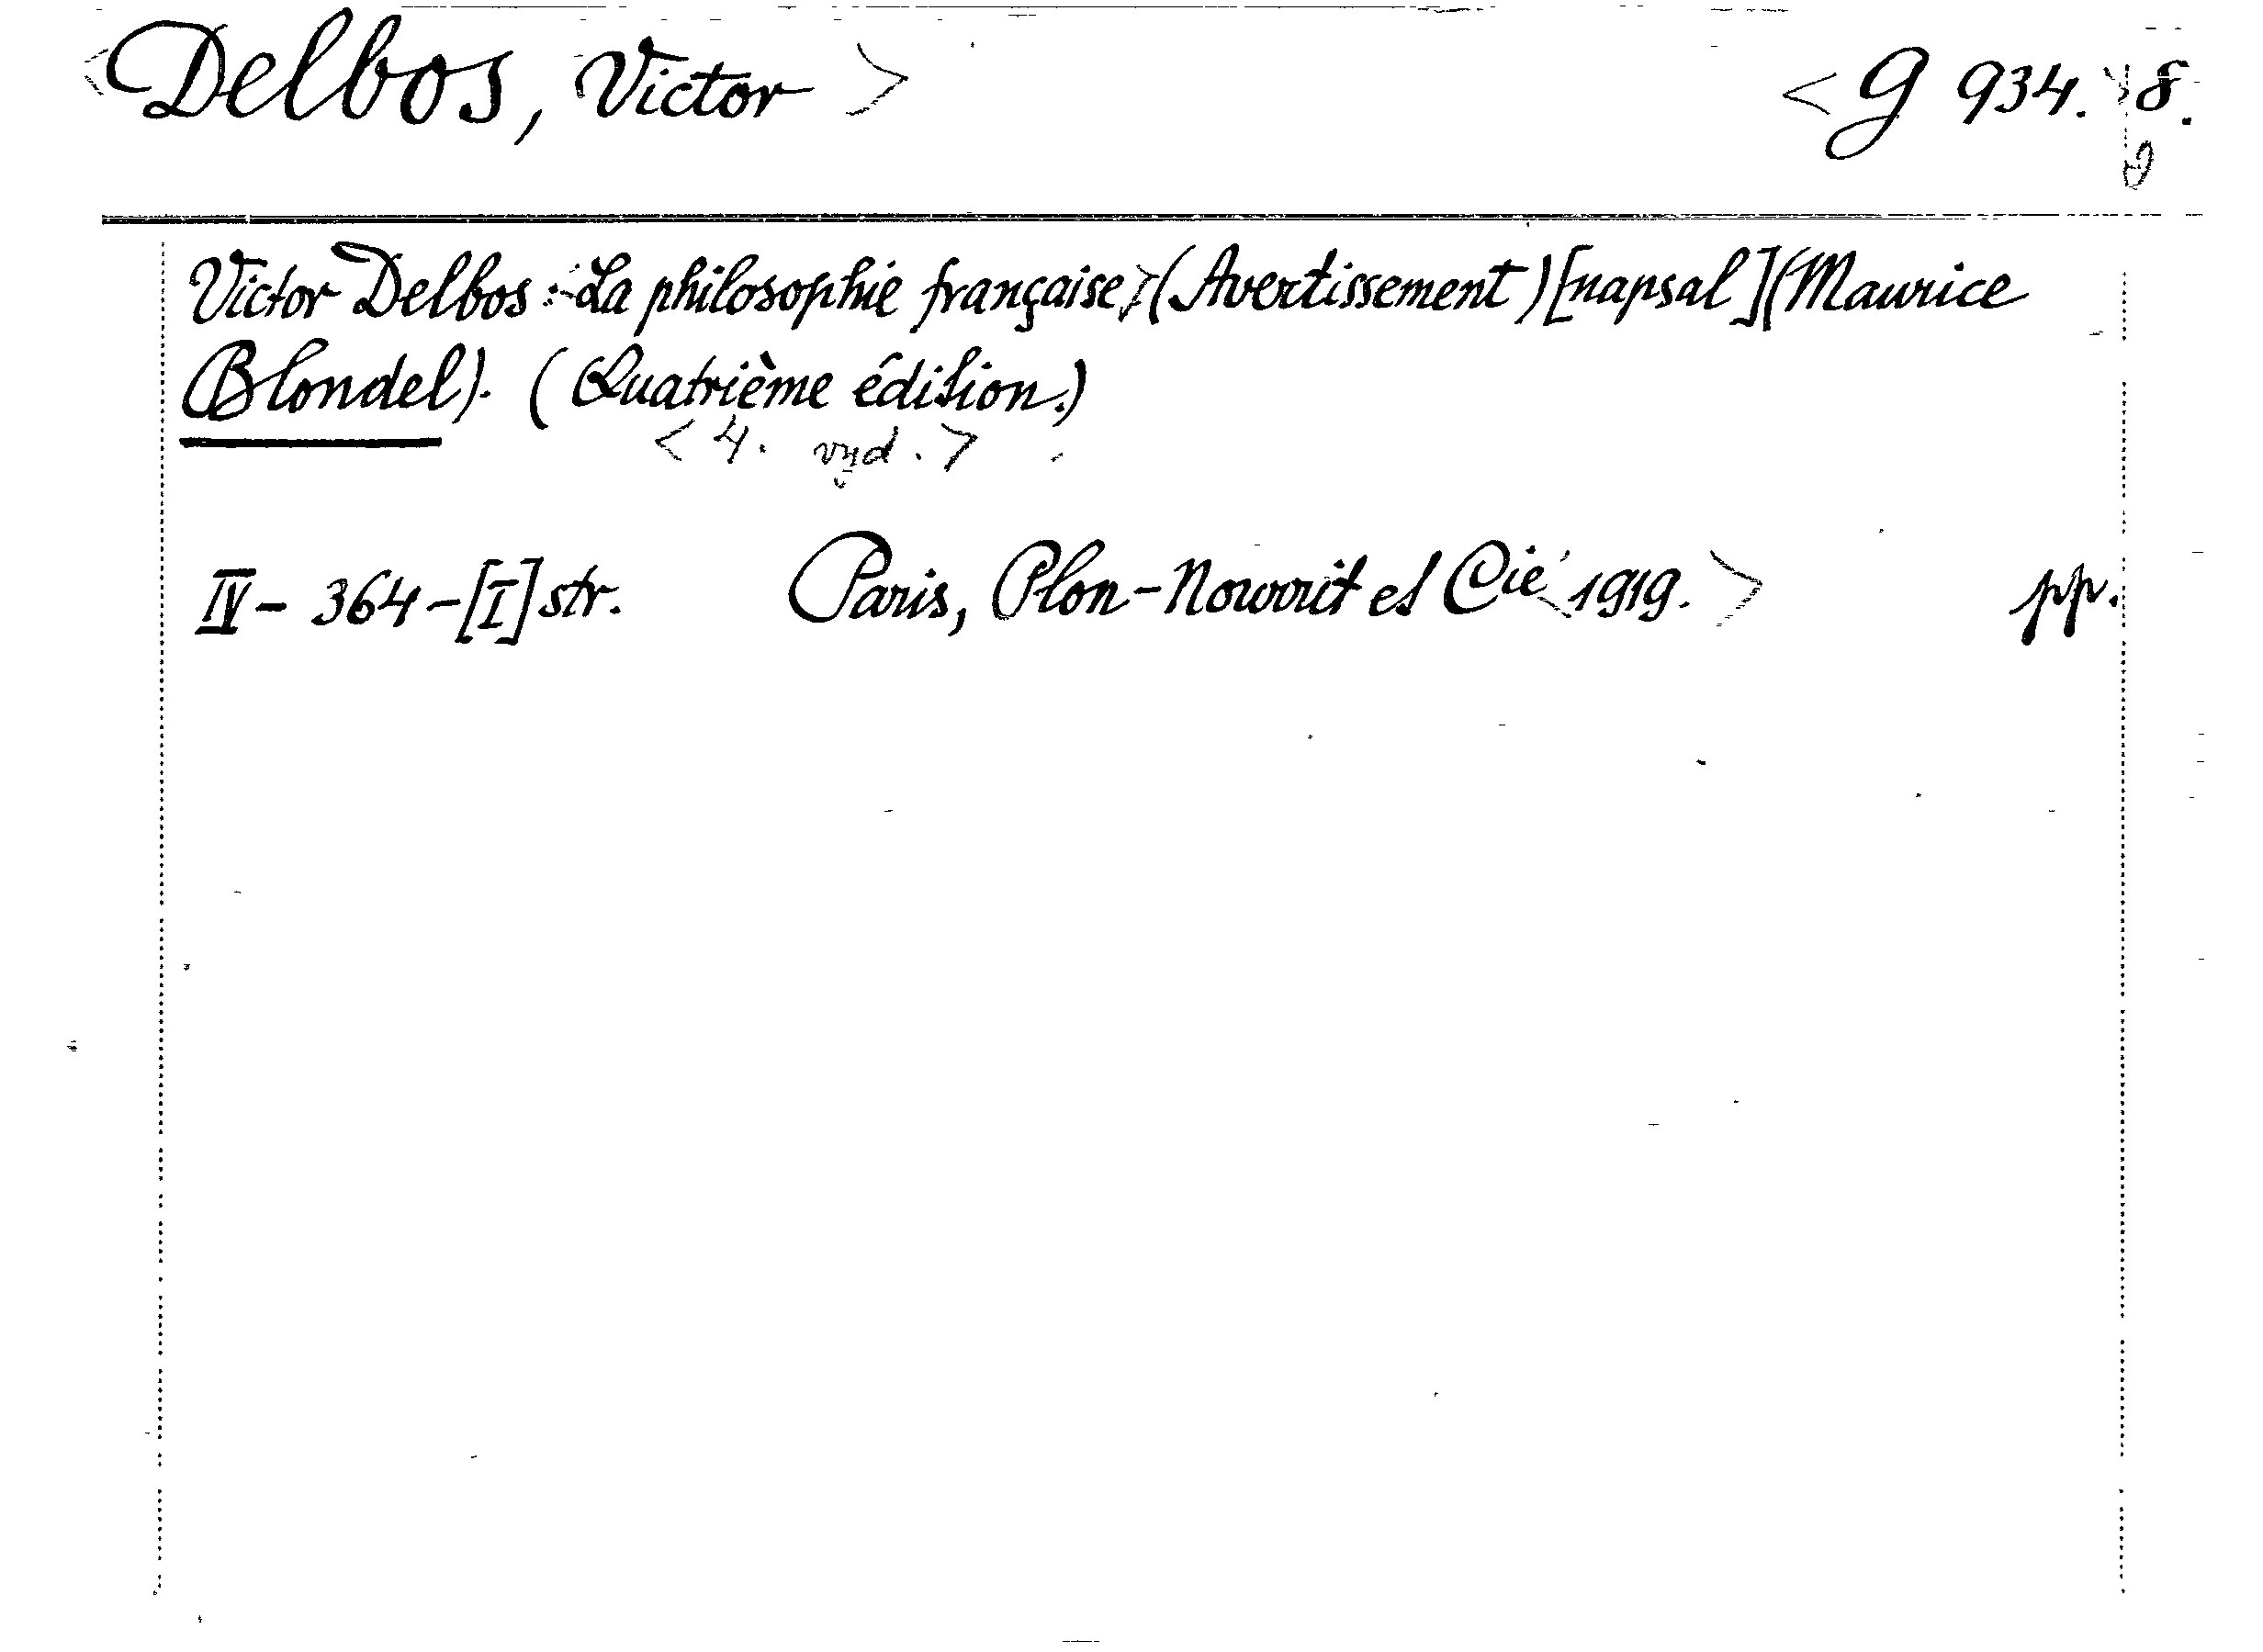 <Delbos, Victor> <G 934. > 8.
Victor Delbos: <La philosophie française> (Avertissement) [napsal] (Maurice
Blondel). (Quatrième édition.)
<4. vyd.>
IV - 364 - [I] str. Paris, Plon-Nourrit et Cie <1919.> pp.